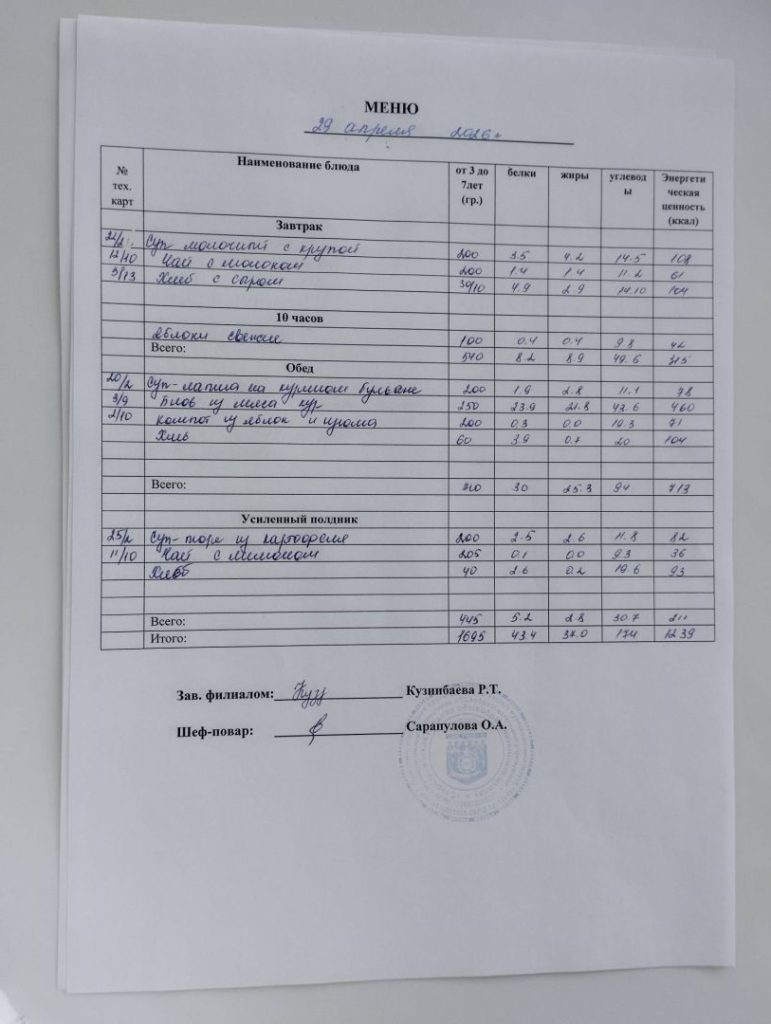 МЕНЮ
29 апреля 2026 г
№ тех. карт Наименование блюда от 3 до 7лет (гр.) белки жиры углеводы Энергетическая ценность (ккал)
Завтрак
21/2 Суп молочный с крупой 200 3.5 4.2 14.5 108
12/10 Чай с молоком 200 1.4 1.4 11.2 61
3/13 Хлеб с сыром 30/10 4.9 2.9 14.10 104
10 часов
Яблоки свежие 100 0.4 0.4 9.8 42
Всего: 540 8.2 8.9 49.6 315
Обед
20/2 Суп-лапша на курином бульоне 200 1.9 2.8 11.1 78
3/9 Плов из мяса кур 250 23.9 21.8 43.6 460
2/10 Компот из яблок и изюма 200 0.3 0.0 19.3 71
Хлеб 60 3.9 0.7 20 104
Всего: 710 30 25.3 94 713
Усиленный полдник
25/2 Суп-пюре из картофеля 200 2.5 2.6 11.8 82
11/10 Чай с лимоном 205 0.1 0.0 9.3 36
Хлеб 40 2.6 0.2 19.6 93
Всего: 445 5.2 2.8 30.7 211
Итого: 1695 43.4 37.0 174 1239
Зав. филиалом: Кузинбаева Р.Т.
Шеф-повар: Сарапулова О.А.